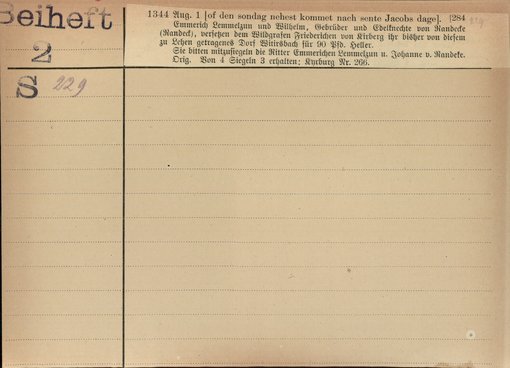 Beiheft
2
S 229
1344 Aug. 1 [of den sondag nehest kommet nach sente Jacobs dage]. [284
Emmerich Lemmelzun und Wilhelm, Gebrüder und Edelknechte von Randecke
(Randeck), versetzen dem Wildgrafen Friederichen von Kirberg ihr bisher von diesem
zu Lehen getragenes Dorf Witirsbach für 90 Pfd. Heller.
Sie bitten mitzusiegeln die Ritter Emmerichen Lemmelzun u. Johanne v. Randeke.
Orig. Von 4 Siegeln 3 erhalten; Kyrburg Nr. 266.